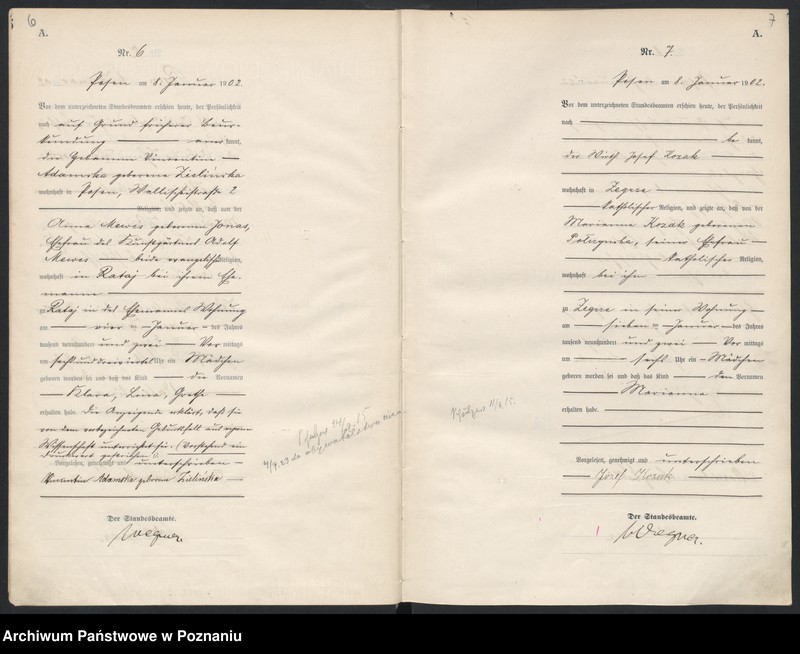 6
A.
Nr. 6
Posen am 8. Januar 1902.
Vor dem unterzeichneten Standesbeamten erschien heute, der Persönlichkeit
nach auf Grund früherer Beur-
kundung — anerkannt,
die Hebamme Vincentine
Adamska geborene Zielinska
wohnhaft in Posen, Wallischeistraße 2
Religion, und zeigte an, daß von der
Anna Mewes geborenen Jonas,
Ehefrau des Kunstgärtners Adolf
Mewes — beide evangelischer Religion,
wohnhaft in Rataj bei ihrem Ehe-
manne
zu Rataj in des Ehemannes Wohnung
am — vier ten Januar des Jahres
tausend neunhundert und zwei — Vor mittags
um sechs und dreiviertel Uhr ein Mädchen
geboren worden sei und daß das Kind — die Vornamen
Klara, Grete
erhalten habe. Die Anzeigende erklärt, daß sie
von dem vorbezeichneten Geburtsfall aus eigener
Wissenschaft unterrichtet sei. (Vorstehend ein
Druckwort gestrichen).
Vorgelesen, genehmigt und unterschrieben
Vincentine Adamska geborene Zielińska
Der Standesbeamte.
Wegner.
7
A.
Nr. 7.
Posen am 8. Januar 1902.
Vor dem unterzeichneten Standesbeamten erschien heute, der Persönlichkeit
nach
be kannt,
der Wirth Josef Kozak
wohnhaft in Zegrze
katholischer Religion, und zeigte an, daß von der
Marianna Kozak geborenen
seiner Ehefrau
katholischer Religion,
wohnhaft bei ihm
zu Zegrze in seiner Wohnung
am — sieben ten Januar des Jahres
tausend neunhundert und zwei — Vor mittags
um — sechs Uhr ein Mädchen
geboren worden sei und daß das Kind — den Vornamen
Marianna
erhalten habe.
Vorgelesen, genehmigt und unterschrieben
Józef Kozak
Der Standesbeamte.
Wegner.
Archiwum Państwowe w Poznaniu